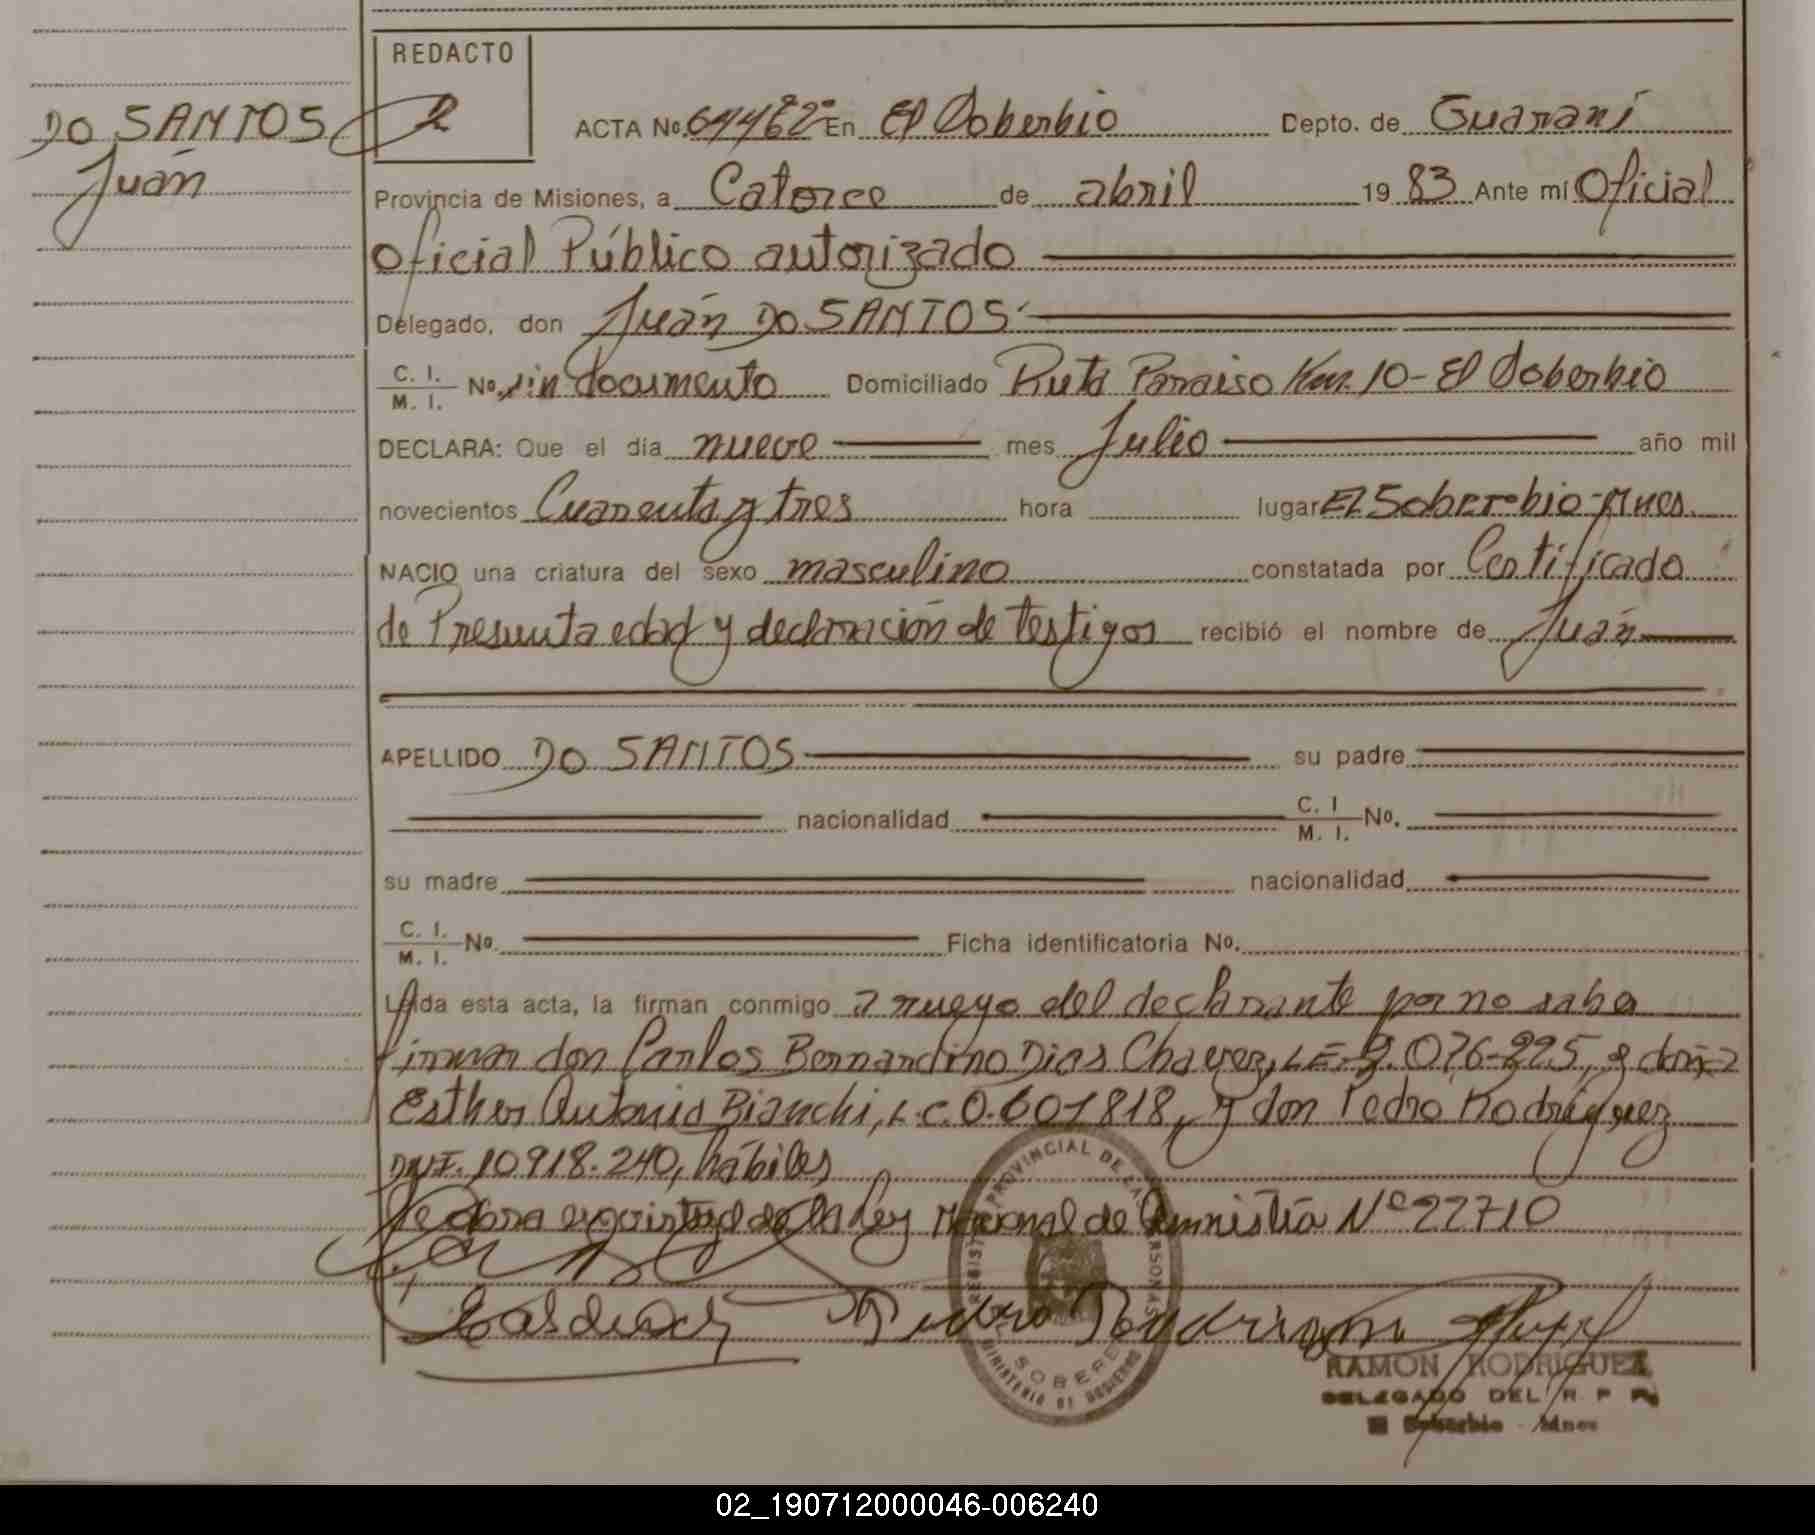 REDACTO
DO SANTOS 2
Juán
ACTA No. 64462º En El Soberbio Depto. de Guaraní
Provincia de Misiones, a Catorce de abril 19 83 Ante mí Oficial
Oficial Público autorizado
Delegado, don Juán DO SANTOS
C. I. M. I. No. sin documento Domiciliado Ruta Paraiso Km. 10-El Soberbio
DECLARA: Que el día nueve mes Julio año mil
novecientos Cuarenta y tres hora lugar El Soberbio-Mnes.
NACIO una criatura del sexo masculino constatada por Certificado
de Presunta edad y declaración de testigos recibió el nombre de Juán
APELLIDO DO SANTOS su padre
nacionalidad C. I M. I. No.
su madre nacionalidad
C. I. M. I. No. Ficha identificatoria No.
Leída esta acta, la firman conmigo a ruego del declarante por no saber
firmar don Carlos Bernardino Dias Chavez, L.E. 076-225, y doña
Esther Antonia Bianchi, L.C. 0.601818, y don Pedro Rodríguez
DNI. 10.918.240, hábiles
de la Ley Nacional de Amnistía Nº 22710
REGISTRO PROVINCIAL DE LAS PERSONAS
MINISTERIO DE GOBIERNO
Pedro Rodriguez
RAMON RODRIGUEZ
DELEGADO DEL R. P. P.
El Soberbio - Mnes
02_190712000046-006240